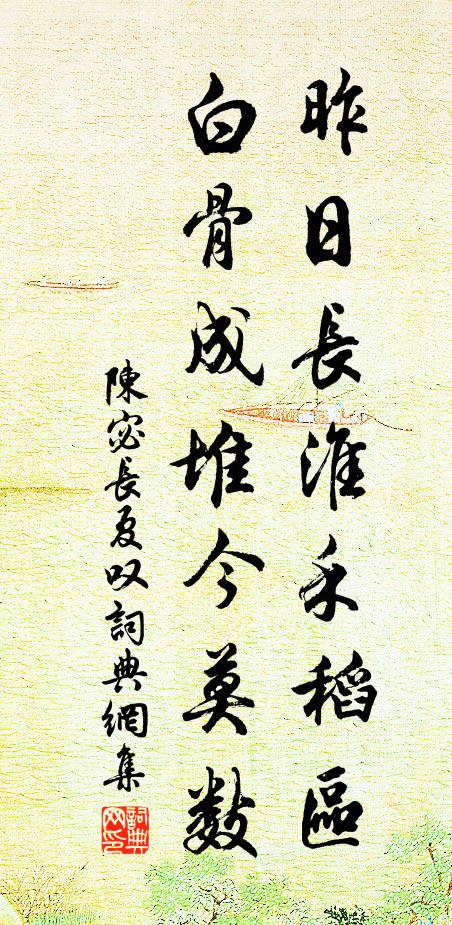 昨日長淮禾稻區
白骨成堆今莫數
陳宓長夏叹詞典網集
詞典网印